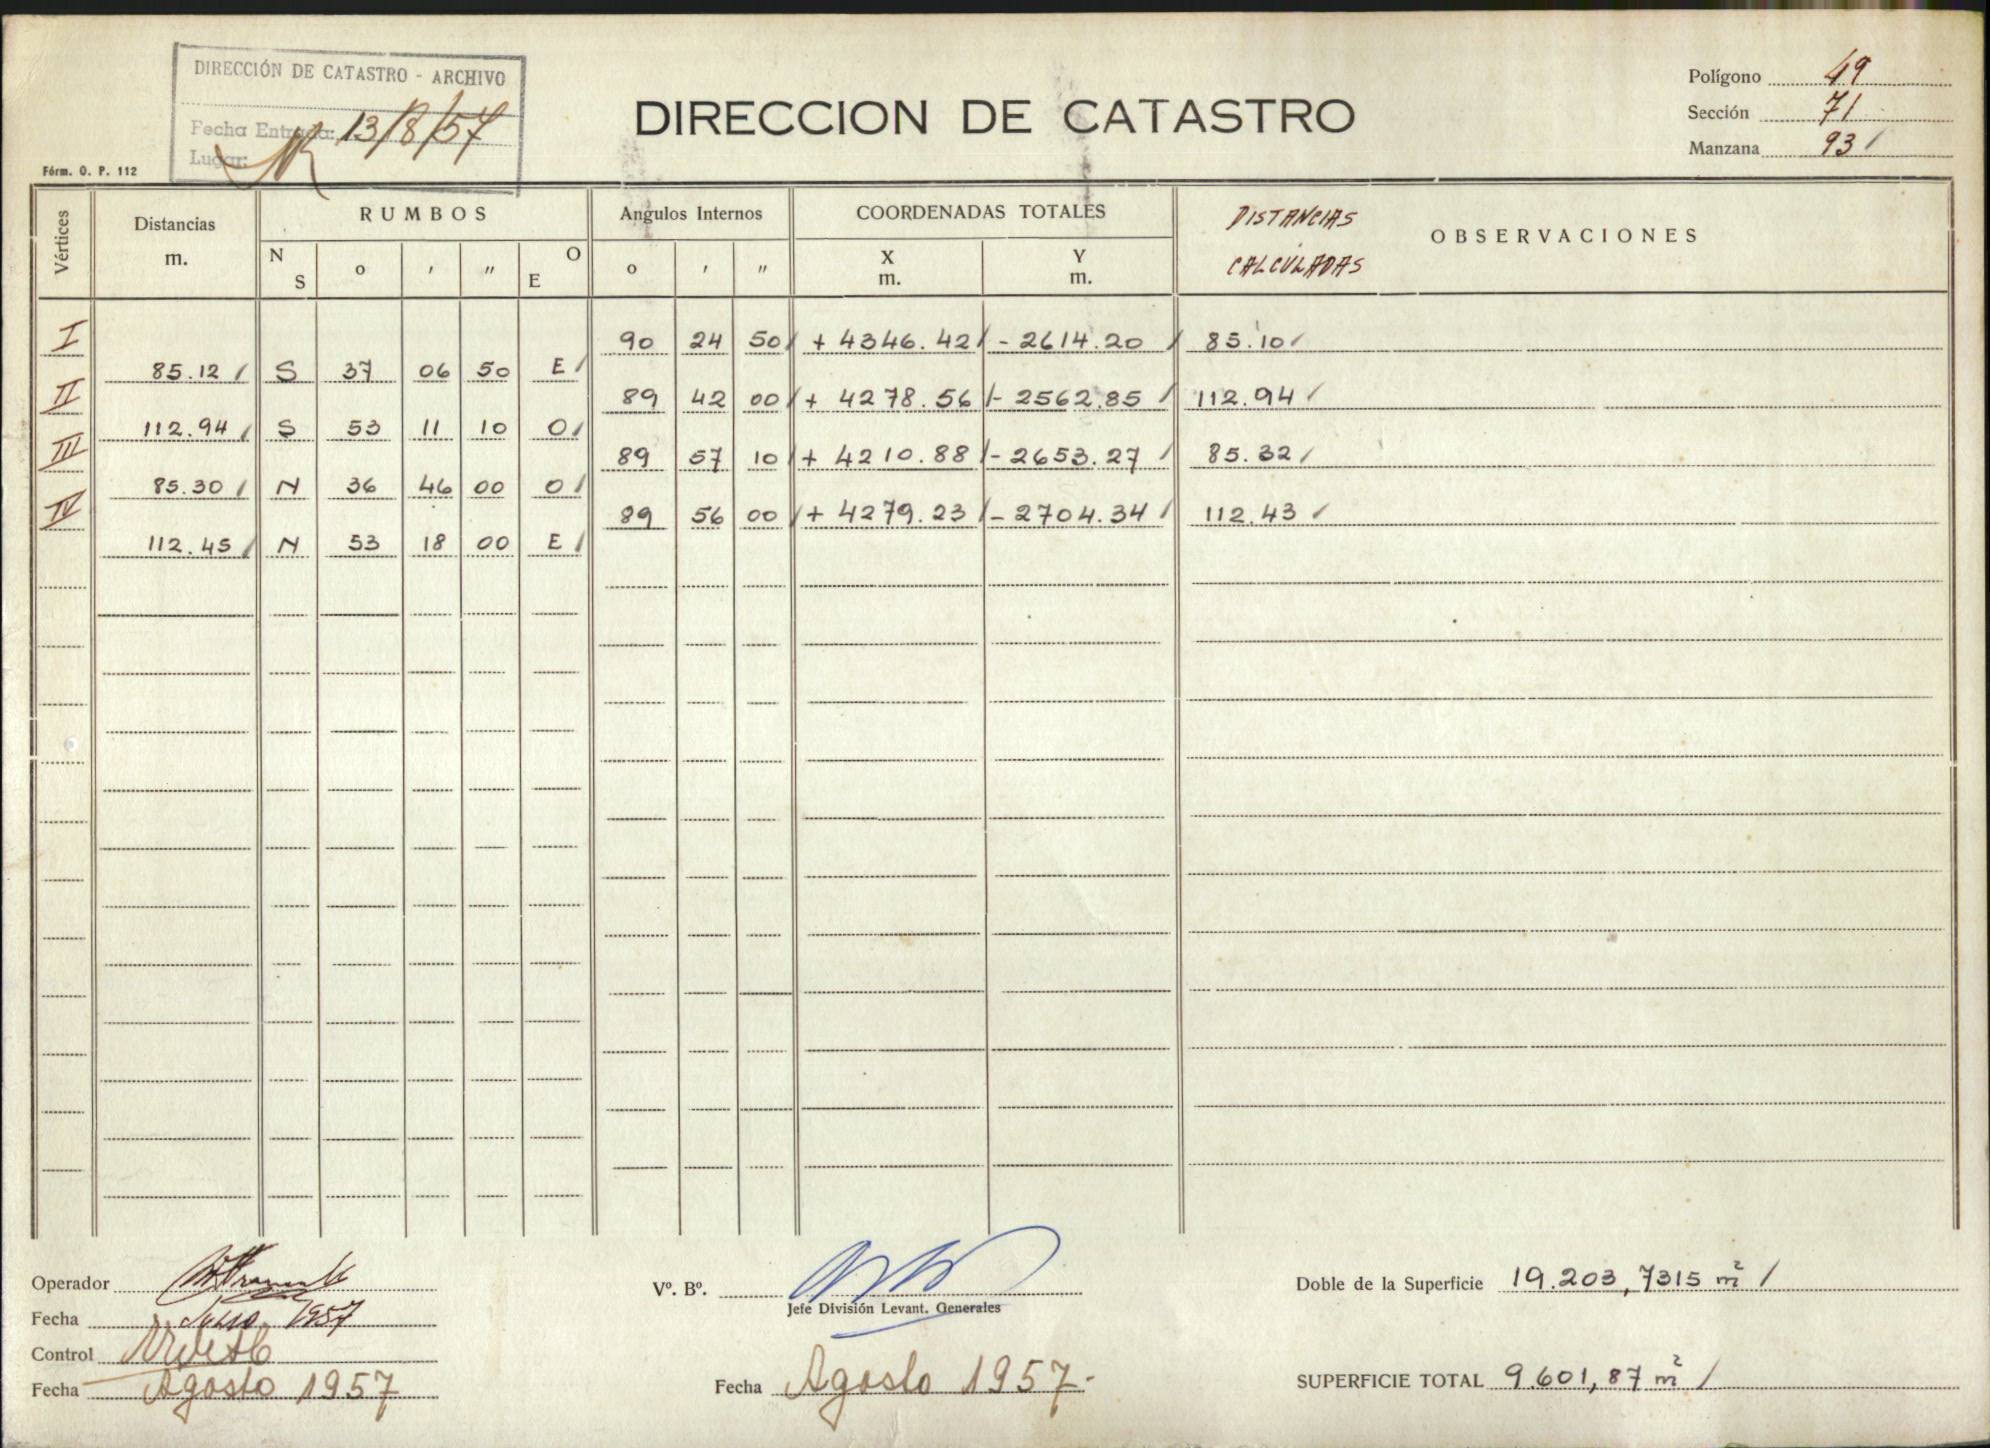 DIRECCIÓN DE CATASTRO - ARCHIVO
Fecha Entrada: 13/8/57
Lugar:
DIRECCION DE CATASTRO
Polígono 49
Sección 71
Manzana 93
Fórm. O. P. 112
Vértices Distancias m. RUMBOS Angulos Internos COORDENADAS TOTALES DISTANCIAS CALCULADAS OBSERVACIONES
N S o ' " E O o ' " X m. Y m.
I 90 24 50 + 4346.42 - 2614.20 85.10
85.12 S 37 06 50 E
II 89 42 00 + 4278.56 - 2562.85 112.94
112.94 S 53 11 10 O
III 89 57 10 + 4210.88 - 2653.27 85.32
85.30 N 36 46 00 O
IV 89 56 00 + 4279.23 - 2704.34 112.43
112.45 N 53 18 00 E
Operador
Fecha 1957
Control
Fecha Agosto 1957
Vº. Bº.
Jefe División Levant. Generales
Fecha Agosto 1957.-
Doble de la Superficie 19.203,7315 m²
SUPERFICIE TOTAL 9.601,87 m²